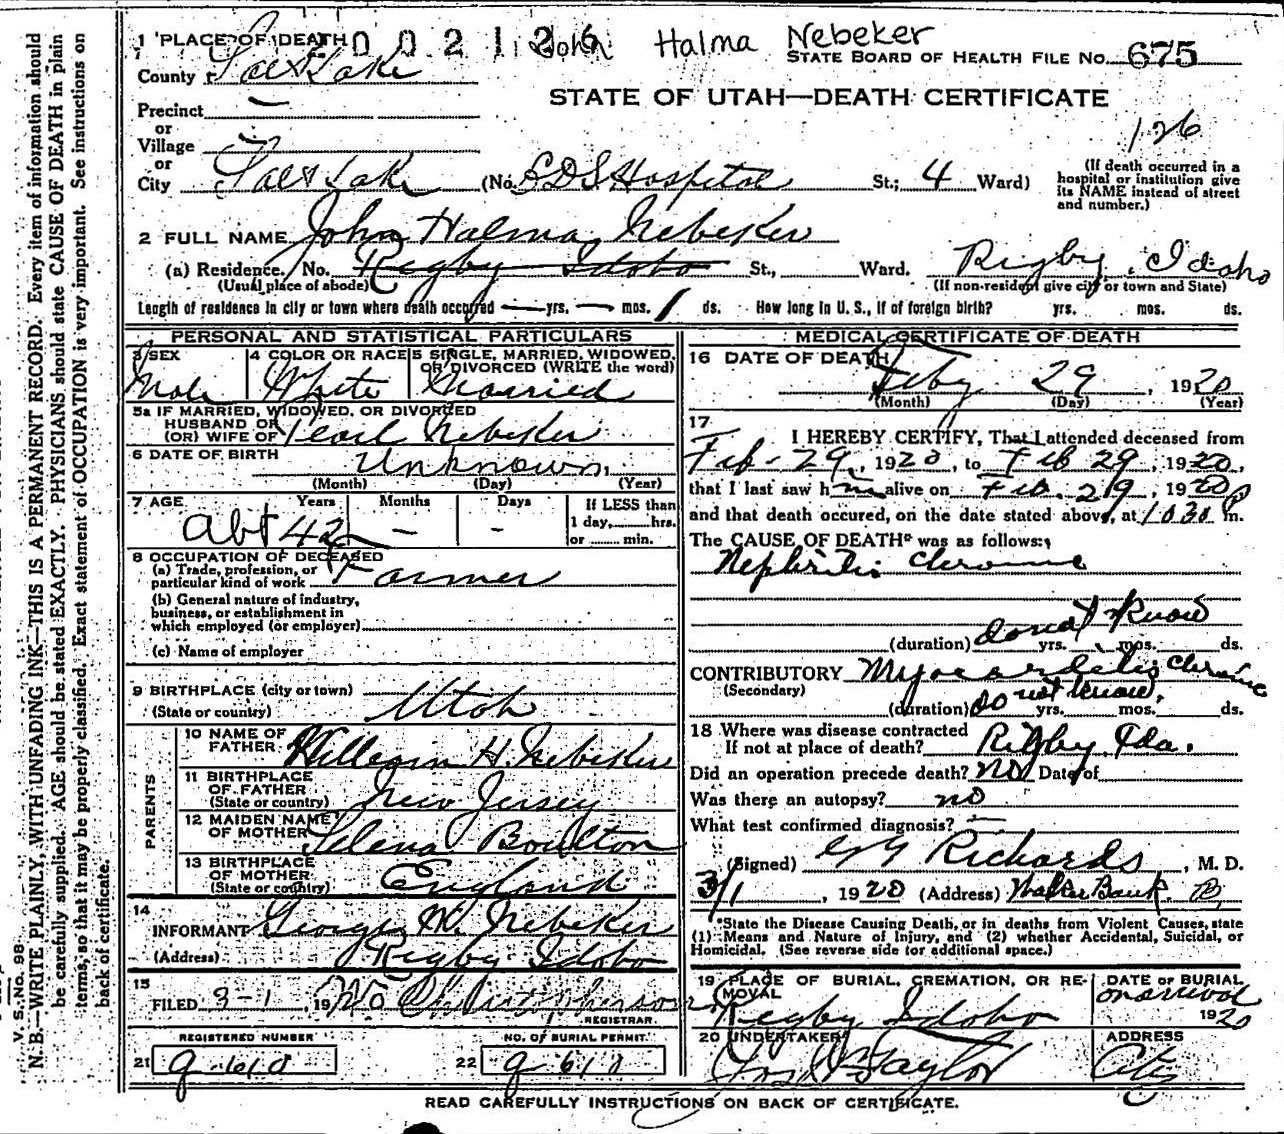 N. B.—WRITE PLAINLY, WITH UNFADING INK—THIS IS A PERMANENT RECORD. Every item of information should
be carefully supplied. AGE should be stated EXACTLY. PHYSICIANS should state CAUSE OF DEATH in plain
terms, so that it may be properly classified. Exact statement of OCCUPATION is very important. See instructions on
back of certificate.
V. S. No. 98
1 PLACE OF DEATH 0021 John Halma Nebeker
STATE BOARD OF HEALTH FILE No. 675
County Salt Lake
STATE OF UTAH—DEATH CERTIFICATE
Precinct
or
Village
126
or
City Salt Lake (No. LDS Hospital St.; 4 Ward)
(If death occurred in a
hospital or institution give
its NAME instead of street
and number.)
2 FULL NAME John Halma Nebeker
(a) Residence. No. Rigby Idaho St., Ward. Rigby, Idaho
(Usual place of abode) (If non-resident give city or town and State)
Length of residence in city or town where death occurred — yrs. — mos. 1 ds. How long in U. S., if of foreign birth? yrs. mos. ds.
PERSONAL AND STATISTICAL PARTICULARS
3 SEX 4 COLOR OR RACE 5 SINGLE, MARRIED, WIDOWED,
OR DIVORCED (WRITE the word)
Male White Married
5a IF MARRIED, WIDOWED, OR DIVORCED
HUSBAND OF
(OR) WIFE OF Pearl Nebeker
6 DATE OF BIRTH Unknown
(Month) (Day) (Year)
7 AGE Years Months Days If LESS than
1 day, hrs.
or min.
abt 42 — -
8 OCCUPATION OF DECEASED
(a) Trade, profession, or
particular kind of work Farmer
(b) General nature of industry,
business, or establishment in
which employed (or employer)
(c) Name of employer
9 BIRTHPLACE (city or town)
(State or country) Utah
PARENTS
10 NAME OF
FATHER William H. Nebeker
11 BIRTHPLACE
OF FATHER
(State or country) New Jersey
12 MAIDEN NAME
OF MOTHER Selena Boulton
13 BIRTHPLACE
OF MOTHER
(State or country) England
14
INFORMANT George W. Nebeker
(Address) Rigby Idaho
15
FILED 3-1, 19 Christopherson
REGISTRAR.
REGISTERED NUMBER NO. OF BURIAL PERMIT.
21 22
MEDICAL CERTIFICATE OF DEATH
16 DATE OF DEATH
Feby 29, 1920
(Month) (Day) (Year)
17
I HEREBY CERTIFY, That I attended deceased from
Feb - 29, 1920, to Feb 29, 1920,
that I last saw him alive on Feb. 29, 1920,
and that death occured, on the date stated above, at 1030 P m.
The CAUSE OF DEATH* was as follows:
Nephritis Chronic
(duration) donot Know yrs. mos. ds.
CONTRIBUTORY Myocarditis Chronic
(Secondary)
(duration) do not know. yrs. mos. ds.
18 Where was disease contracted
If not at place of death? Rigby Ida.
Did an operation precede death? No Date of
Was there an autopsy? no
What test confirmed diagnosis? —
(Signed) G G Richards, M. D.
3/1, 1920 (Address) Walker Bank. B.
*State the Disease Causing Death, or in deaths from Violent Causes, state
(1) Means and Nature of Injury, and (2) whether Accidental, Suicidal, or
Homicidal. (See reverse side for additional space.)
19 PLACE OF BURIAL, CREMATION, OR RE-
MOVAL
DATE OF BURIAL
Rigby Idaho
on arrival
1920
20 UNDERTAKER ADDRESS
Jos Wm Taylor City
READ CAREFULLY INSTRUCTIONS ON BACK OF CERTIFICATE.